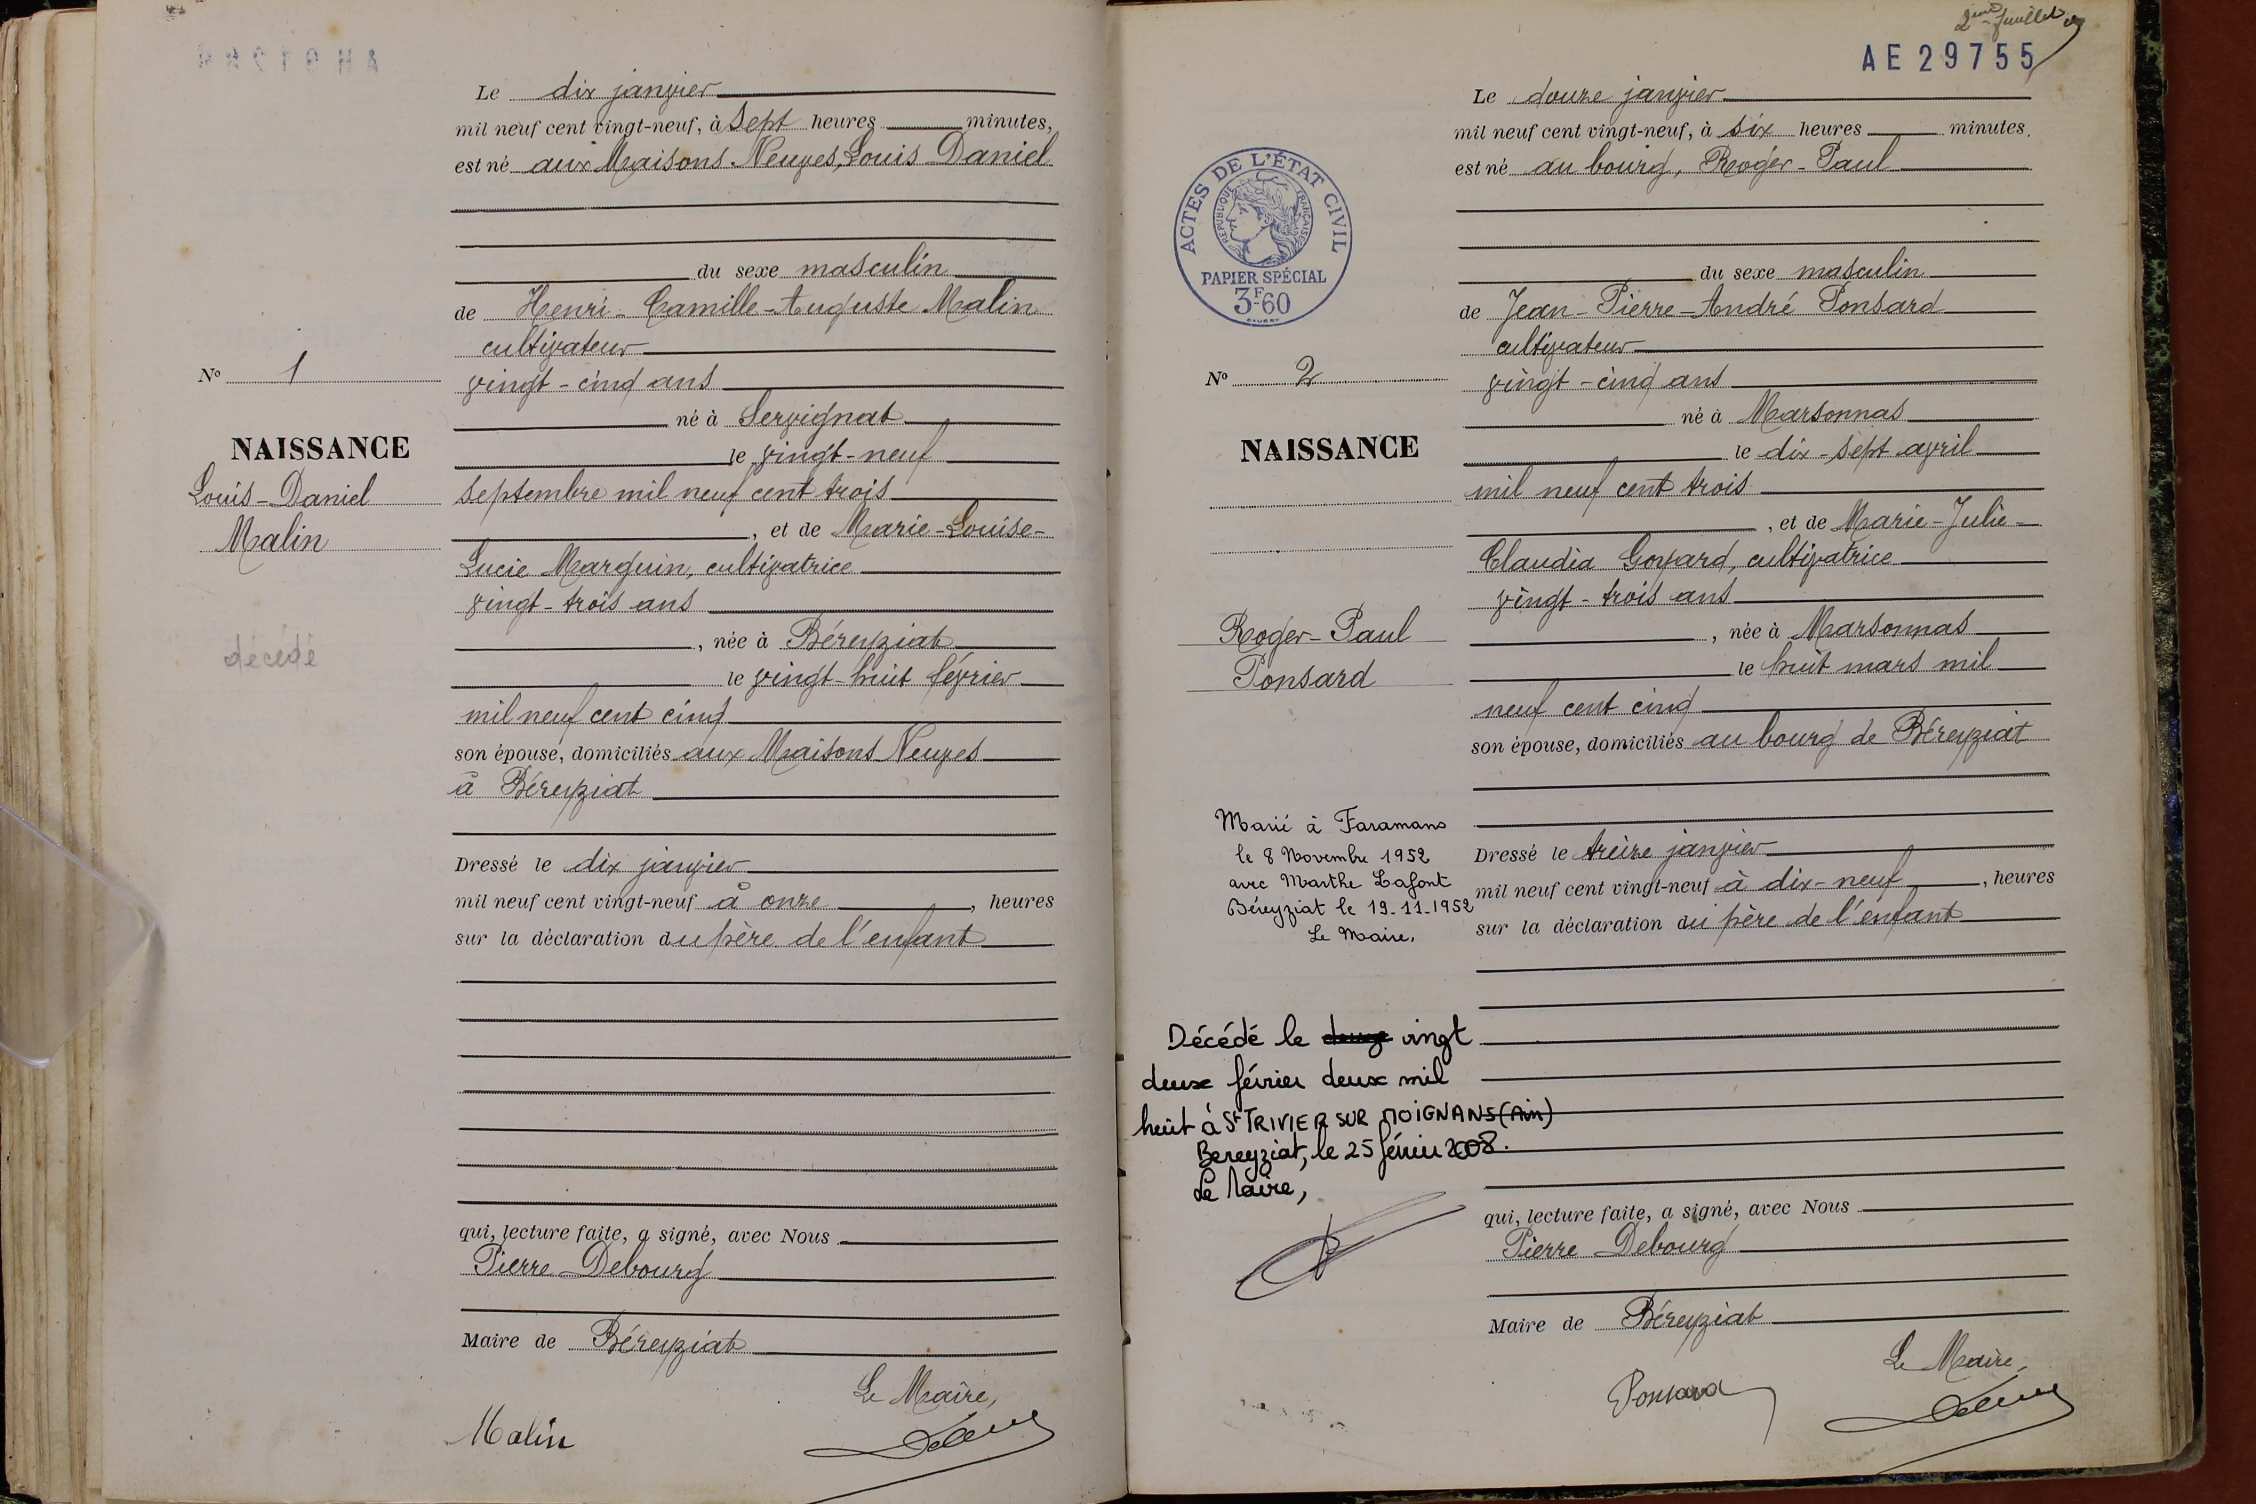 Le dix janvier
mil neuf cent vingt-neuf, à sept heures minutes,
est né aux Maisons-Neuves, Louis Daniel
du sexe masculin
de Henri-Camille-Auguste Malin
cultivateur
vingt-cinq ans
né à Servignat
le vingt-neuf
septembre mil neuf cent trois
, et de Marie-Louise-
Lucie Marguin, cultivatrice
vingt-trois ans
, née à Béreyziat
le vingt-huit février
mil neuf cent cinq
son épouse, domiciliés aux Maisons Neuves
à Béreyziat
Dressé le dix janvier
mil neuf cent vingt-neuf à onze , heures
sur la déclaration du père de l'enfant
qui, lecture faite, a signé, avec Nous
Pierre Debourg
Maire de Béreyziat
Le Maire,
Malin
No 1
NAISSANCE
Louis-Daniel
Malin
décédé
2ème feuillet
AE29755
Le douze janvier
mil neuf cent vingt-neuf, à six heures minutes,
est né au bourg, Roger-Paul
du sexe masculin
de Jean-Pierre-André Ponsard
cultivateur
vingt-cinq ans
né à Marsonnas
le dix-sept avril
mil neuf cent trois
, et de Marie-Julie-
Claudia Goyard, cultivatrice
vingt-trois ans
, née à Marsonnas
le huit mars mil
neuf cent cinq
son épouse, domiciliés au bourg de Béreyziat
Dressé le treize janvier
mil neuf cent vingt-neuf à dix-neuf , heures
sur la déclaration du père de l'enfant
qui, lecture faite, a signé, avec Nous
Pierre Debourg
Maire de Béreyziat
Le Maire,
Ponsard
ACTES DE L'ÉTAT CIVIL
RÉPUBLIQUE FRANÇAISE
PAPIER SPÉCIAL
3F60
No 2
NAISSANCE
Roger-Paul
Ponsard
Marié à Faramans
le 8 Novembre 1952
avec Marthe Lafont
Béreyziat le 19-11-1952
Le Maire,
Décédé le vingt
deux février deux mil
huit à St TRIVIER SUR MOIGNANS (Ain)
Bereyziat, le 25 février 2008.
Le Maire,